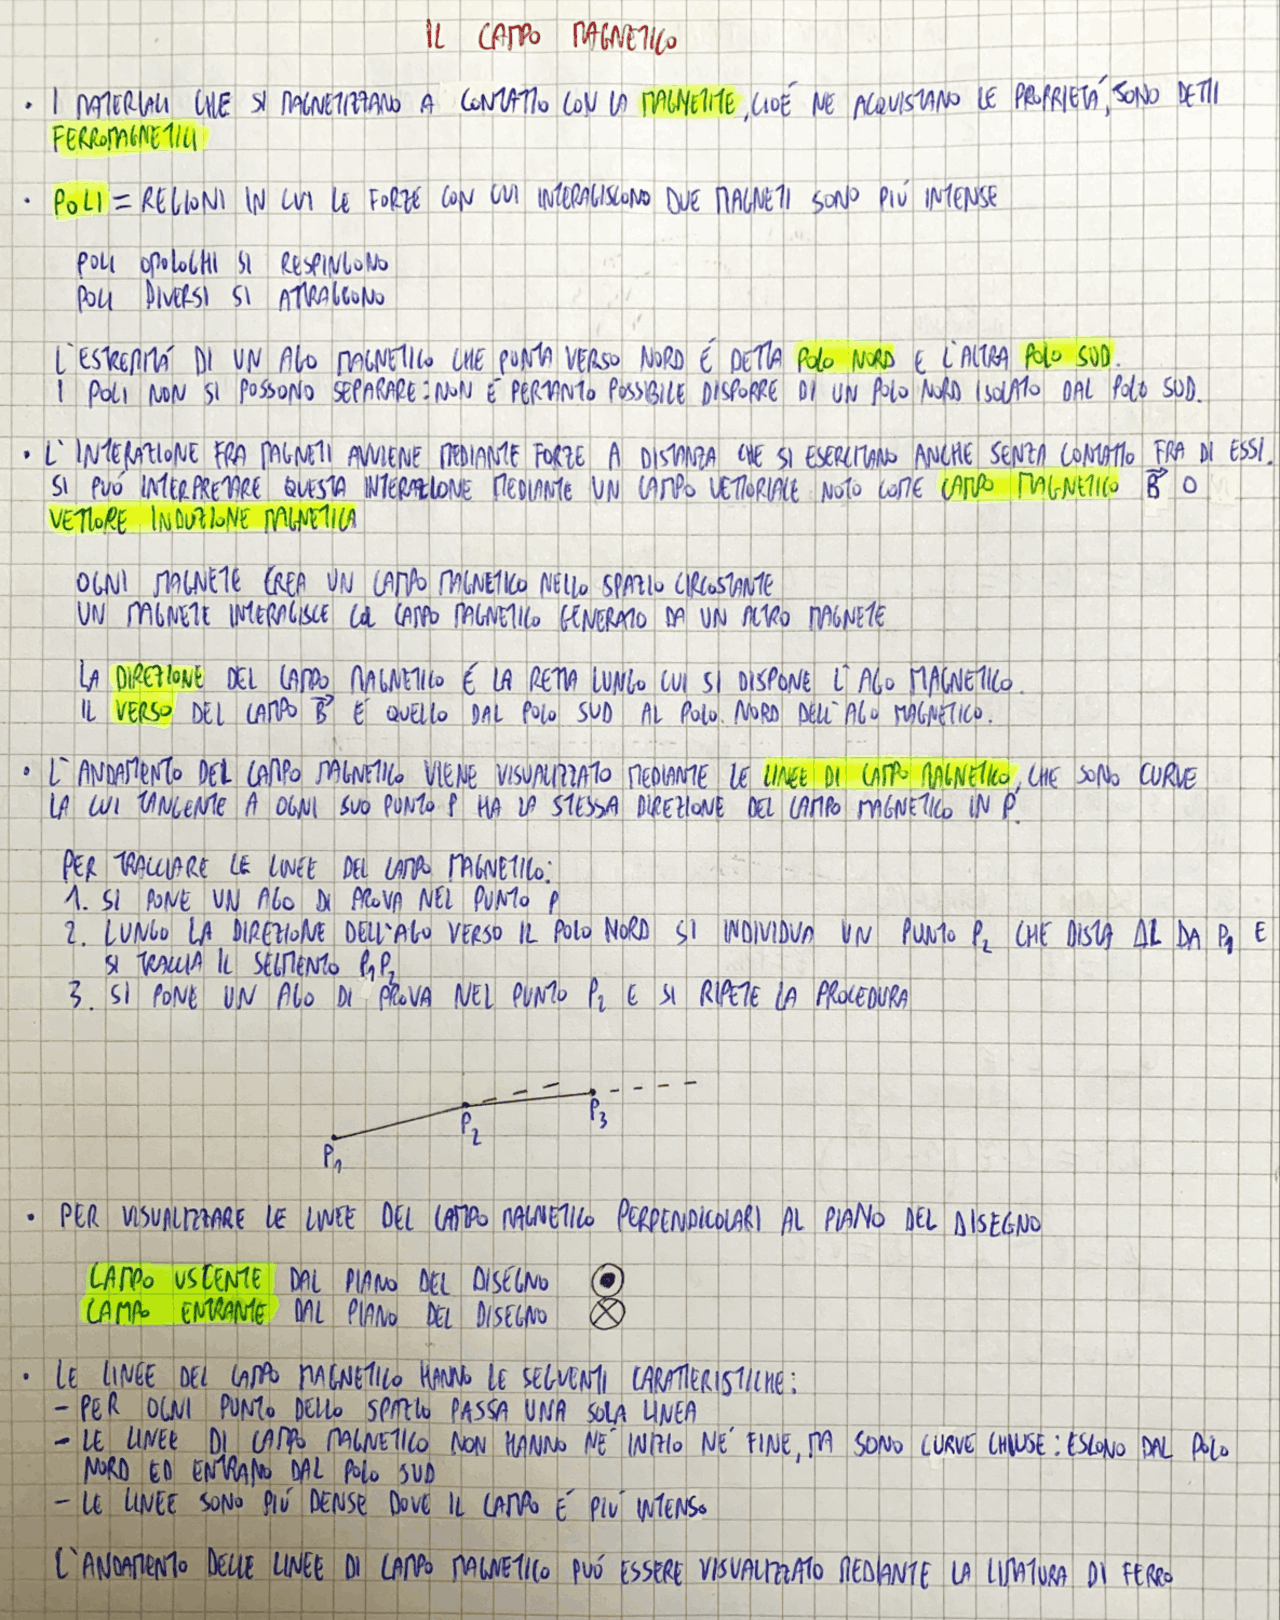 IL CAMPO MAGNETICO
• I MATERIALI CHE SI MAGNETIZZANO A CONTATTO CON LA MAGNETITE, CIOÉ NE ACQUISTANO LE PROPRIETÁ, SONO DETTI
FERROMAGNETICI
• POLI = REGIONI IN CUI LE FORZE CON CUI INTERAGISCONO DUE MAGNETI SONO PIÚ INTENSE
POLI OMOLOGHI SI RESPINGONO
POLI DIVERSI SI ATTRAGGONO
L'ESTREMITÁ DI UN AGO MAGNETICO CHE PUNTA VERSO NORD É DETTA POLO NORD E L'ALTRA POLO SUD.
I POLI NON SI POSSONO SEPARARE: NON É PERTANTO POSSIBILE DISPORRE DI UN POLO NORD ISOLATO DAL POLO SUD.
• L'INTERAZIONE FRA MAGNETI AVVIENE MEDIANTE FORZE A DISTANZA CHE SI ESERCITANO ANCHE SENZA CONTATTO FRA DI ESSI.
SI PUÓ INTERPRETARE QUESTA INTERAZIONE MEDIANTE UN CAMPO VETTORIALE NOTO COME CAMPO MAGNETICO B⃗ O
VETTORE INDUZIONE MAGNETICA
OGNI MAGNETE CREA UN CAMPO MAGNETICO NELLO SPAZIO CIRCOSTANTE
UN MAGNETE INTERAGISCE COL CAMPO MAGNETICO GENERATO DA UN ALTRO MAGNETE
LA DIREZIONE DEL CAMPO MAGNETICO É LA RETTA LUNGO CUI SI DISPONE L'AGO MAGNETICO.
IL VERSO DEL CAMPO B⃗ É QUELLO DAL POLO SUD AL POLO NORD DELL'AGO MAGNETICO.
• L'ANDAMENTO DEL CAMPO MAGNETICO VIENE VISUALIZZATO MEDIANTE LE LINEE DI CAMPO MAGNETICO, CHE SONO CURVE
LA CUI TANGENTE A OGNI SUO PUNTO P HA LA STESSA DIREZIONE DEL CAMPO MAGNETICO IN P.
PER TRACCIARE LE LINEE DEL CAMPO MAGNETICO:
1. SI PONE UN AGO DI PROVA NEL PUNTO P
2. LUNGO LA DIREZIONE DELL'AGO VERSO IL POLO NORD SI INDIVIDUA UN PUNTO P₂ CHE DISTA ΔL DA P₁ E
SI TRACCIA IL SEGMENTO P₁P₂
3. SI PONE UN AGO DI PROVA NEL PUNTO P₂ E SI RIPETE LA PROCEDURA
P₁ P₂ P₃
• PER VISUALIZZARE LE LINEE DEL CAMPO MAGNETICO PERPENDICOLARI AL PIANO DEL DISEGNO
CAMPO USCENTE DAL PIANO DEL DISEGNO ⊙
CAMPO ENTRANTE DAL PIANO DEL DISEGNO ⊗
• LE LINEE DEL CAMPO MAGNETICO HANNO LE SEGUENTI CARATTERISTICHE:
- PER OGNI PUNTO DELLO SPAZIO PASSA UNA SOLA LINEA
- LE LINEE DI CAMPO MAGNETICO NON HANNO NÉ INIZIO NÉ FINE, MA SONO CURVE CHIUSE: ESCONO DAL POLO
NORD ED ENTRANO DAL POLO SUD
- LE LINEE SONO PIÚ DENSE DOVE IL CAMPO É PIÚ INTENSO
L'ANDAMENTO DELLE LINEE DI CAMPO MAGNETICO PUÓ ESSERE VISUALIZZATO MEDIANTE LA LIMATURA DI FERRO